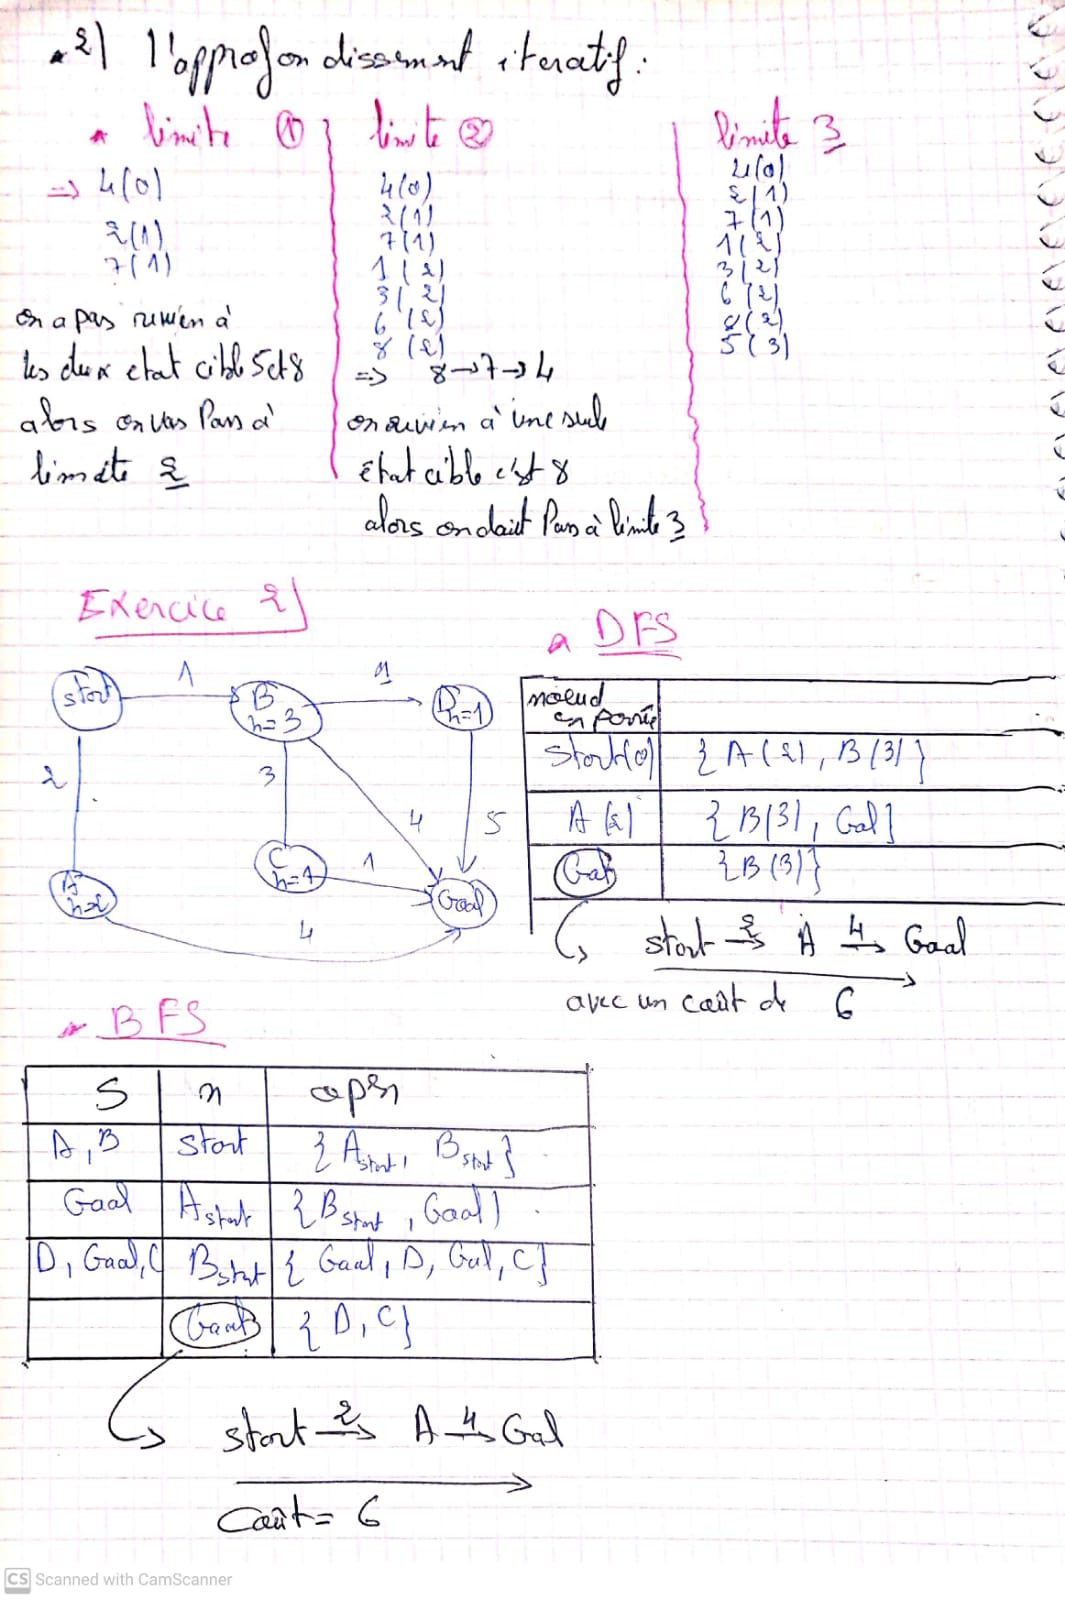 2) l'approfondissement iteratif :
limite ①
=> 4(0)
2(1)
7(1)
on a pas
les deux etat cible 5 et 8
alors on vas Pass à
limite 2
limite ②
4(0)
2(1)
7(1)
1(2)
3(2)
6(2)
8(2)
=> 8→7→4
à une seule
état cible c'st 8
alors on doit Pass à limite 3
limite 3
4(0)
2(1)
7(1)
1(2)
3(2)
6(2)
8(2)
5(3)
Exercice 2)
start 1 B h=3 1 D h=1
2 3 4 5
A h=2 C h=1 1 Goal
4
DFS
noeud
Start(0) { A(2), B(3) }
A(2) { B(3), Gal }
Goal { B(3) }
start 2→ A 4→ Goal
avec un coût de 6
BFS
S n
A, B Start { A start, B start }
Goal A start { B start, Goal }
D, Goal, C B start { Goal, D, Gal, C }
Goal { D, C }
start 2→ A 4→ Gal
Coût = 6
CS Scanned with CamScanner